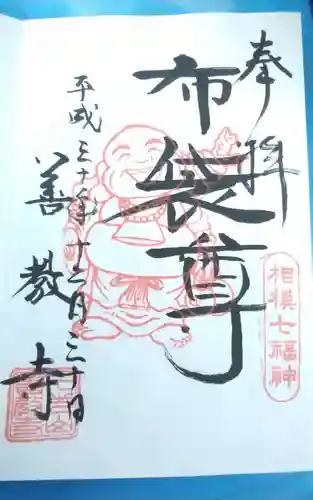 奉拝
布袋尊
相模七福神
平成三十年十二月三十日
善教寺